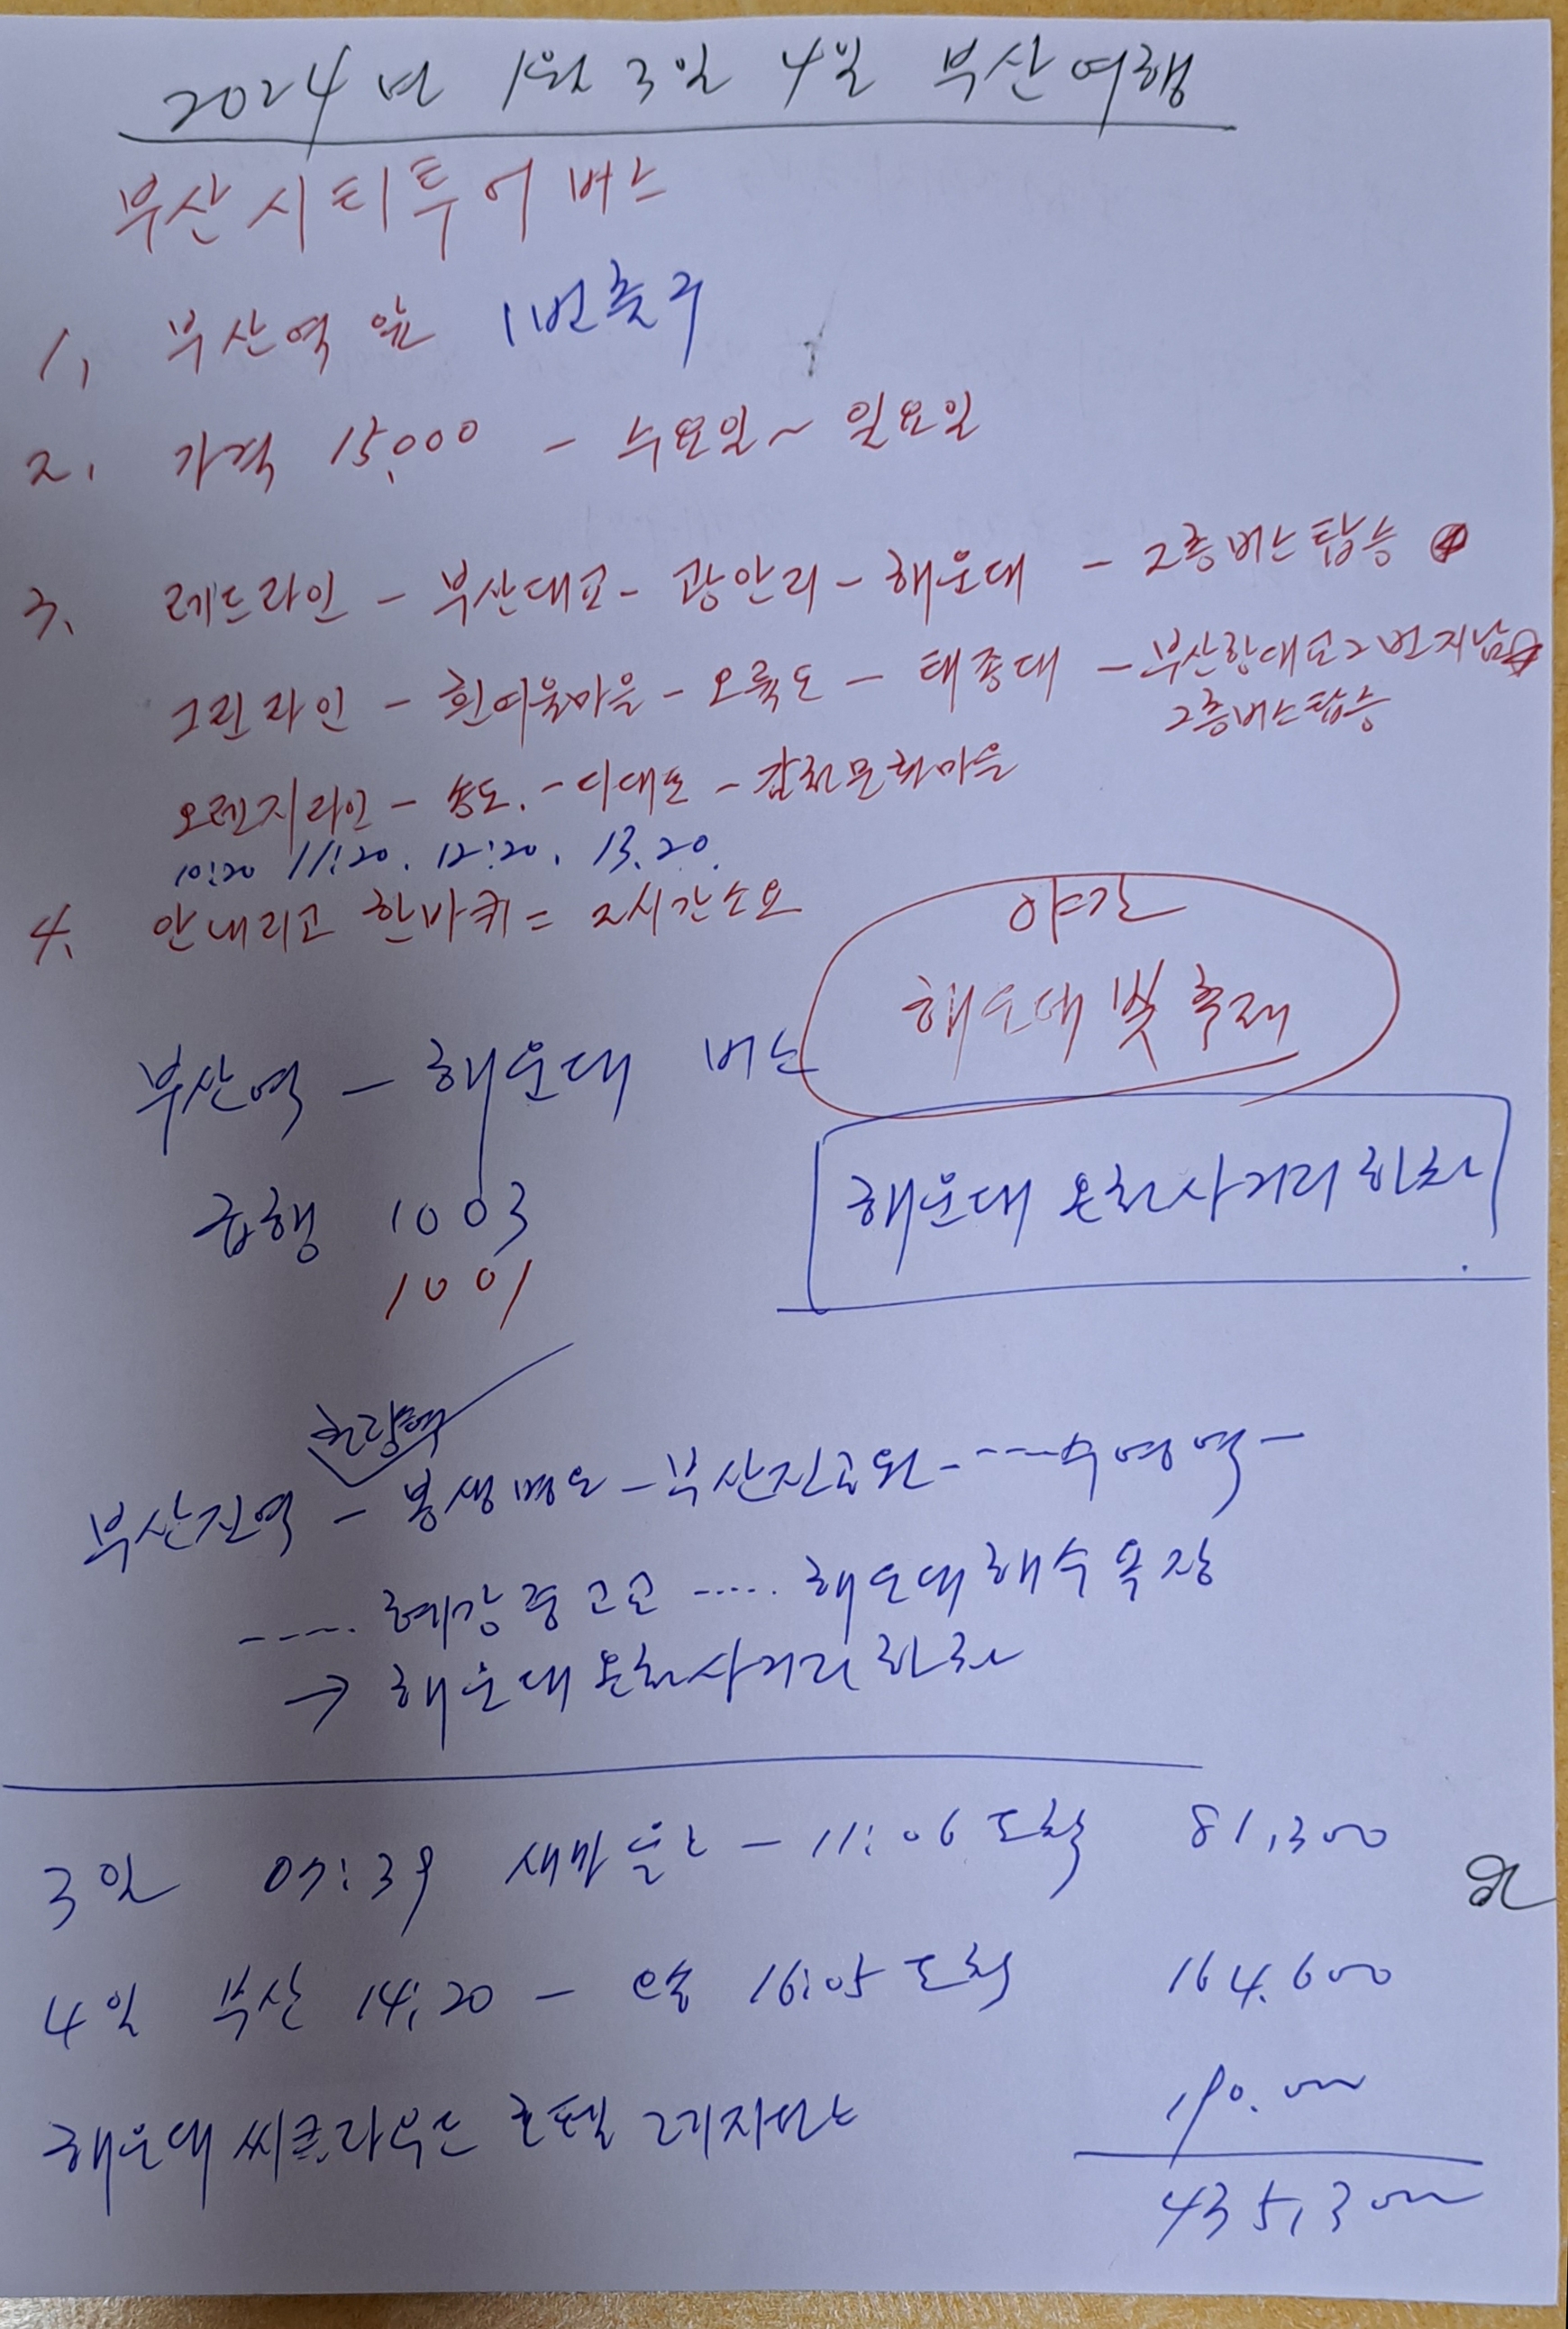 2024년 1월 3일 4일 부산여행
부산시티투어버스
1, 부산역 앞 1번출구
2. 가격 15,000 - 수요일~일요일
3. 레드라인 - 부산대교 - 광안리 - 해운대 - 2층버스탑승
그린라인 - 흰여울마을 - 오륙도 - 태종대 - 부산항대교 2번 지남
2층버스탑승
오렌지라인 - 송도. - 다대포 - 감천문화마을
10:20 11:20. 12:20. 13.20.
4. 안내리고 한바퀴 = 2시간소요
야간
해운대 빛 축제
부산역 - 해운대 버스
해운대 온천사거리 하차
급행 1003
1001
부산진역 - 봉생병원 - 부산진교회 - ---- 수영역 -
----- 혜강중고교 ..... 해운대해수욕장
→ 해운대온천사거리 하차
3일 07:39 새마을 - 11:06 도착 81,300
4일 부산 14:20 - 오송 16:05 도착 164.600
해운대 씨클라우드 호텔 레지던스 190.000
435,300